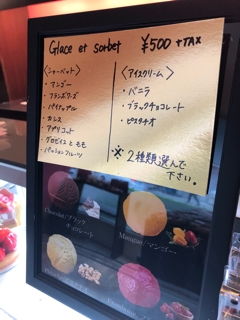 Glace et Sorbet ¥500 +TAX
<シャーベット>
・マンゴー
・フランボワーズ
・パイナップル
・カシス
・アプリコット
・グロゼイユともも
・パッションフルーツ
<アイスクリーム>
・バニラ
・ブラックチョコレート
・ピスタチオ
※2種類選んで
下さい。
Chocolat/ブラック
チョコレート
Mangue/マンゴー